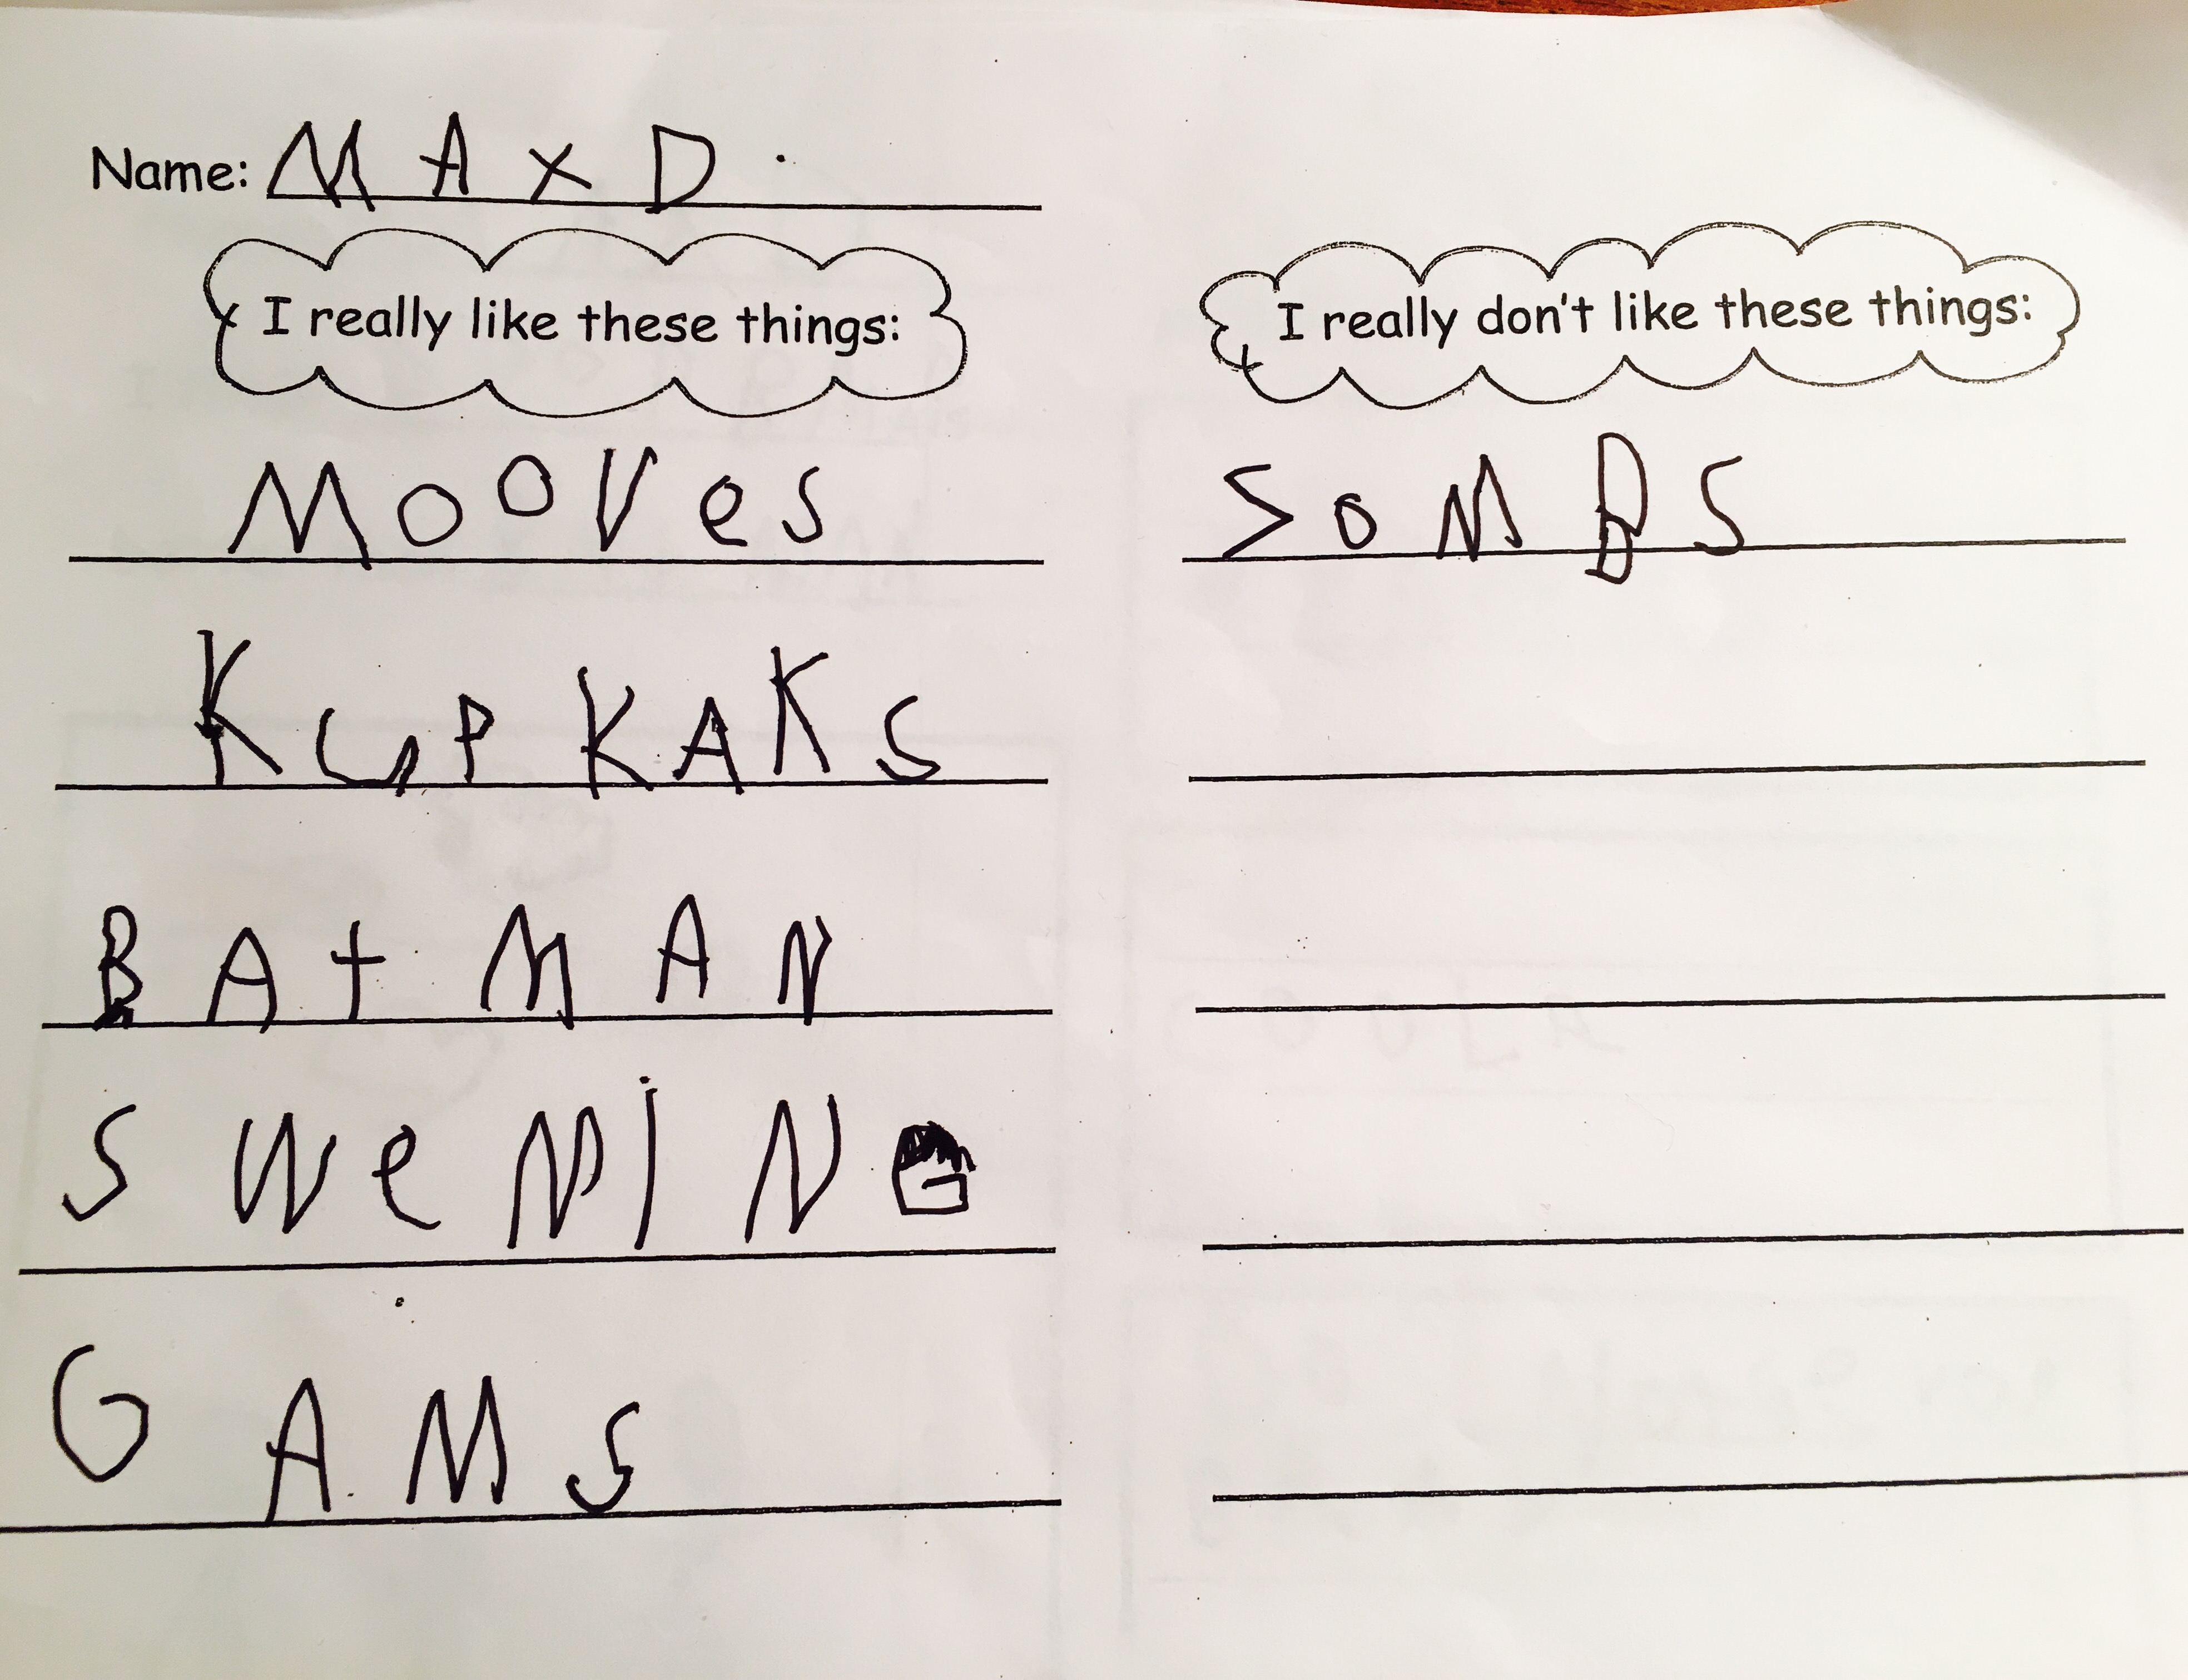 Name: MAX D.
I really like these things:
MOOVeS
KUPKAKS
BAtMAN
SWeMiNG
GAMS
I really don't like these things:
SOMBS